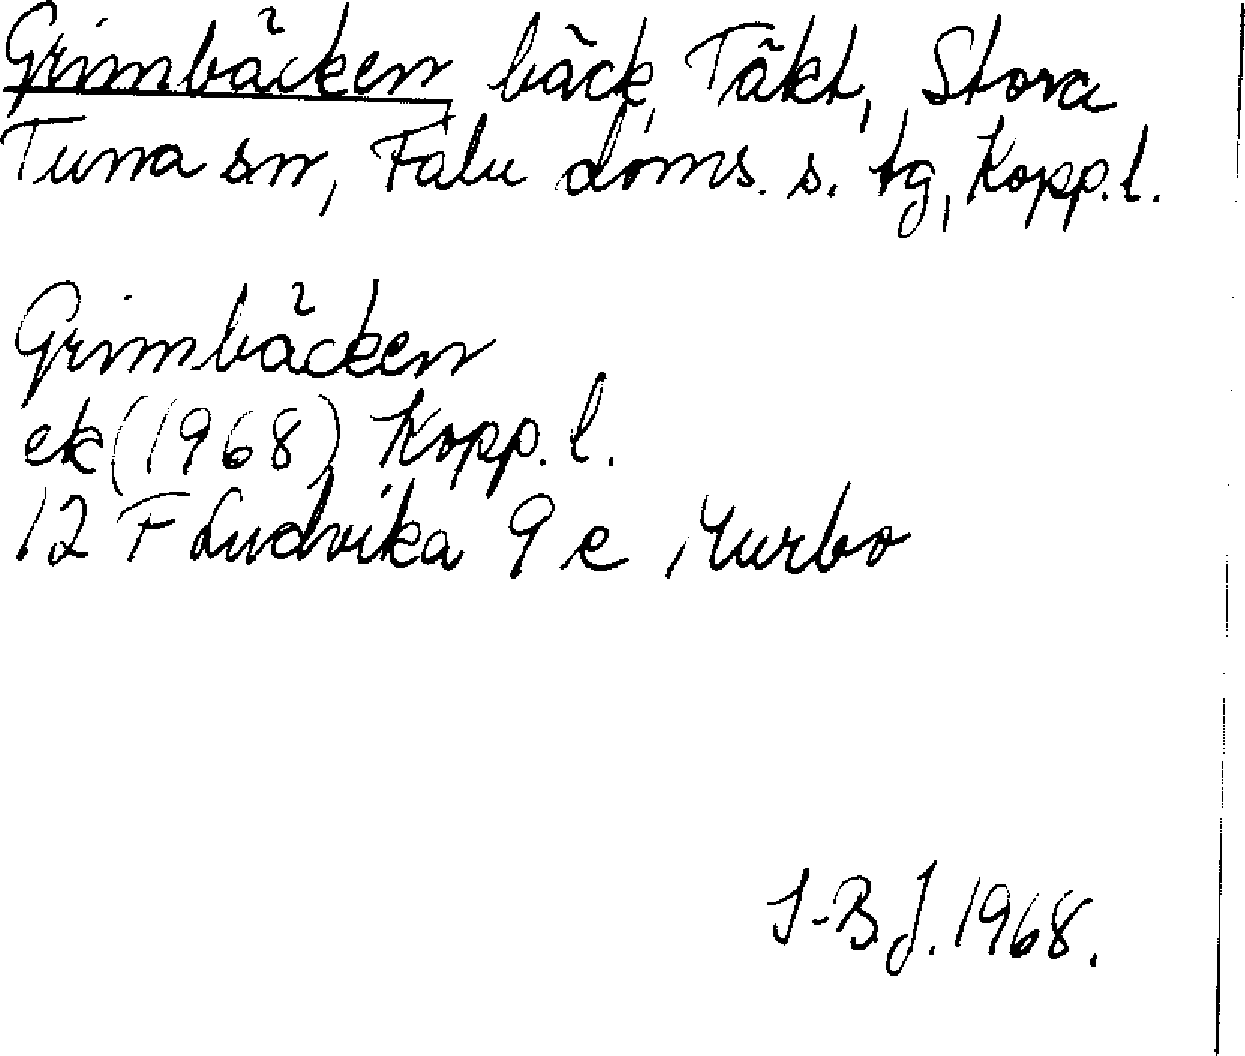 Grimbäcken, bäck, Täkt, Stora
Tuna sn, Falu doms. s. tg, Kopp. l.
Grimbäcken
ek (1968) Kopp. l.
12 F Ludvika 9 e, Murbo
I-B J. 1968.